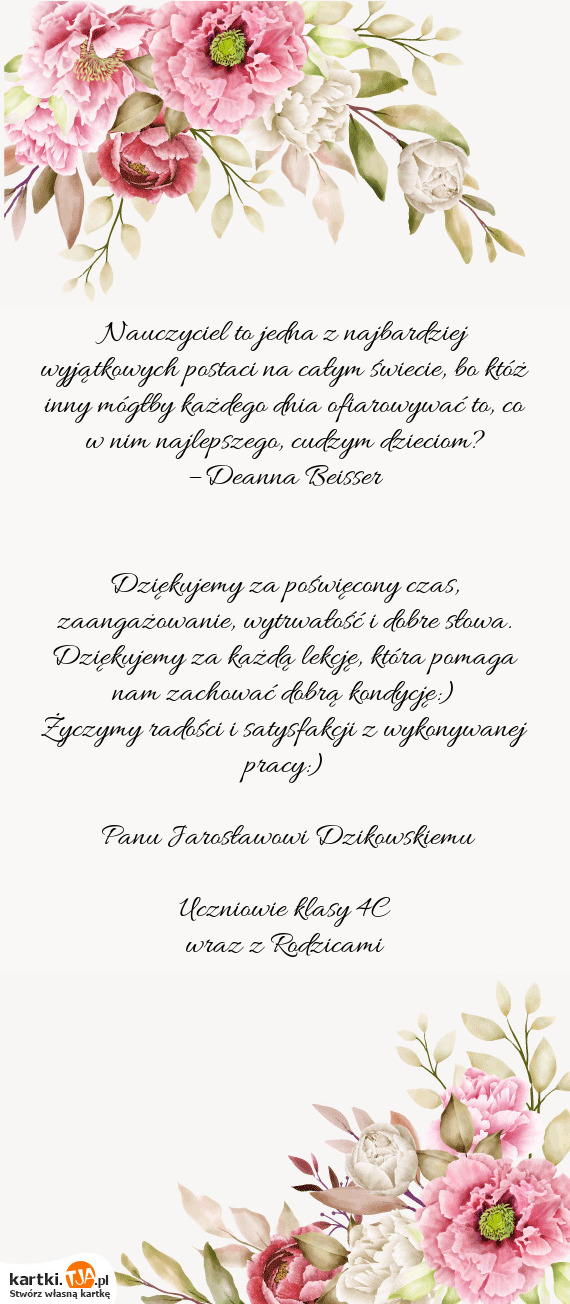 Nauczyciel to jedna z najbardziej
wyjątkowych postaci na całym świecie, bo któż
inny mógłby każdego dnia ofiarowywać to, co
w nim najlepszego, cudzym dzieciom?
– Deanna Beisser
Dziękujemy za poświęcony czas,
zaangażowanie, wytrwałość i dobre słowa.
Dziękujemy za każdą lekcję, która pomaga
nam zachować dobrą kondycję:)
Życzymy radości i satysfakcji z wykonywanej
pracy:)
Panu Jarosławowi Dzikowskiemu
Uczniowie klasy 4C
wraz z Rodzicami
kartki.TJA.pl
Stwórz własną kartkę